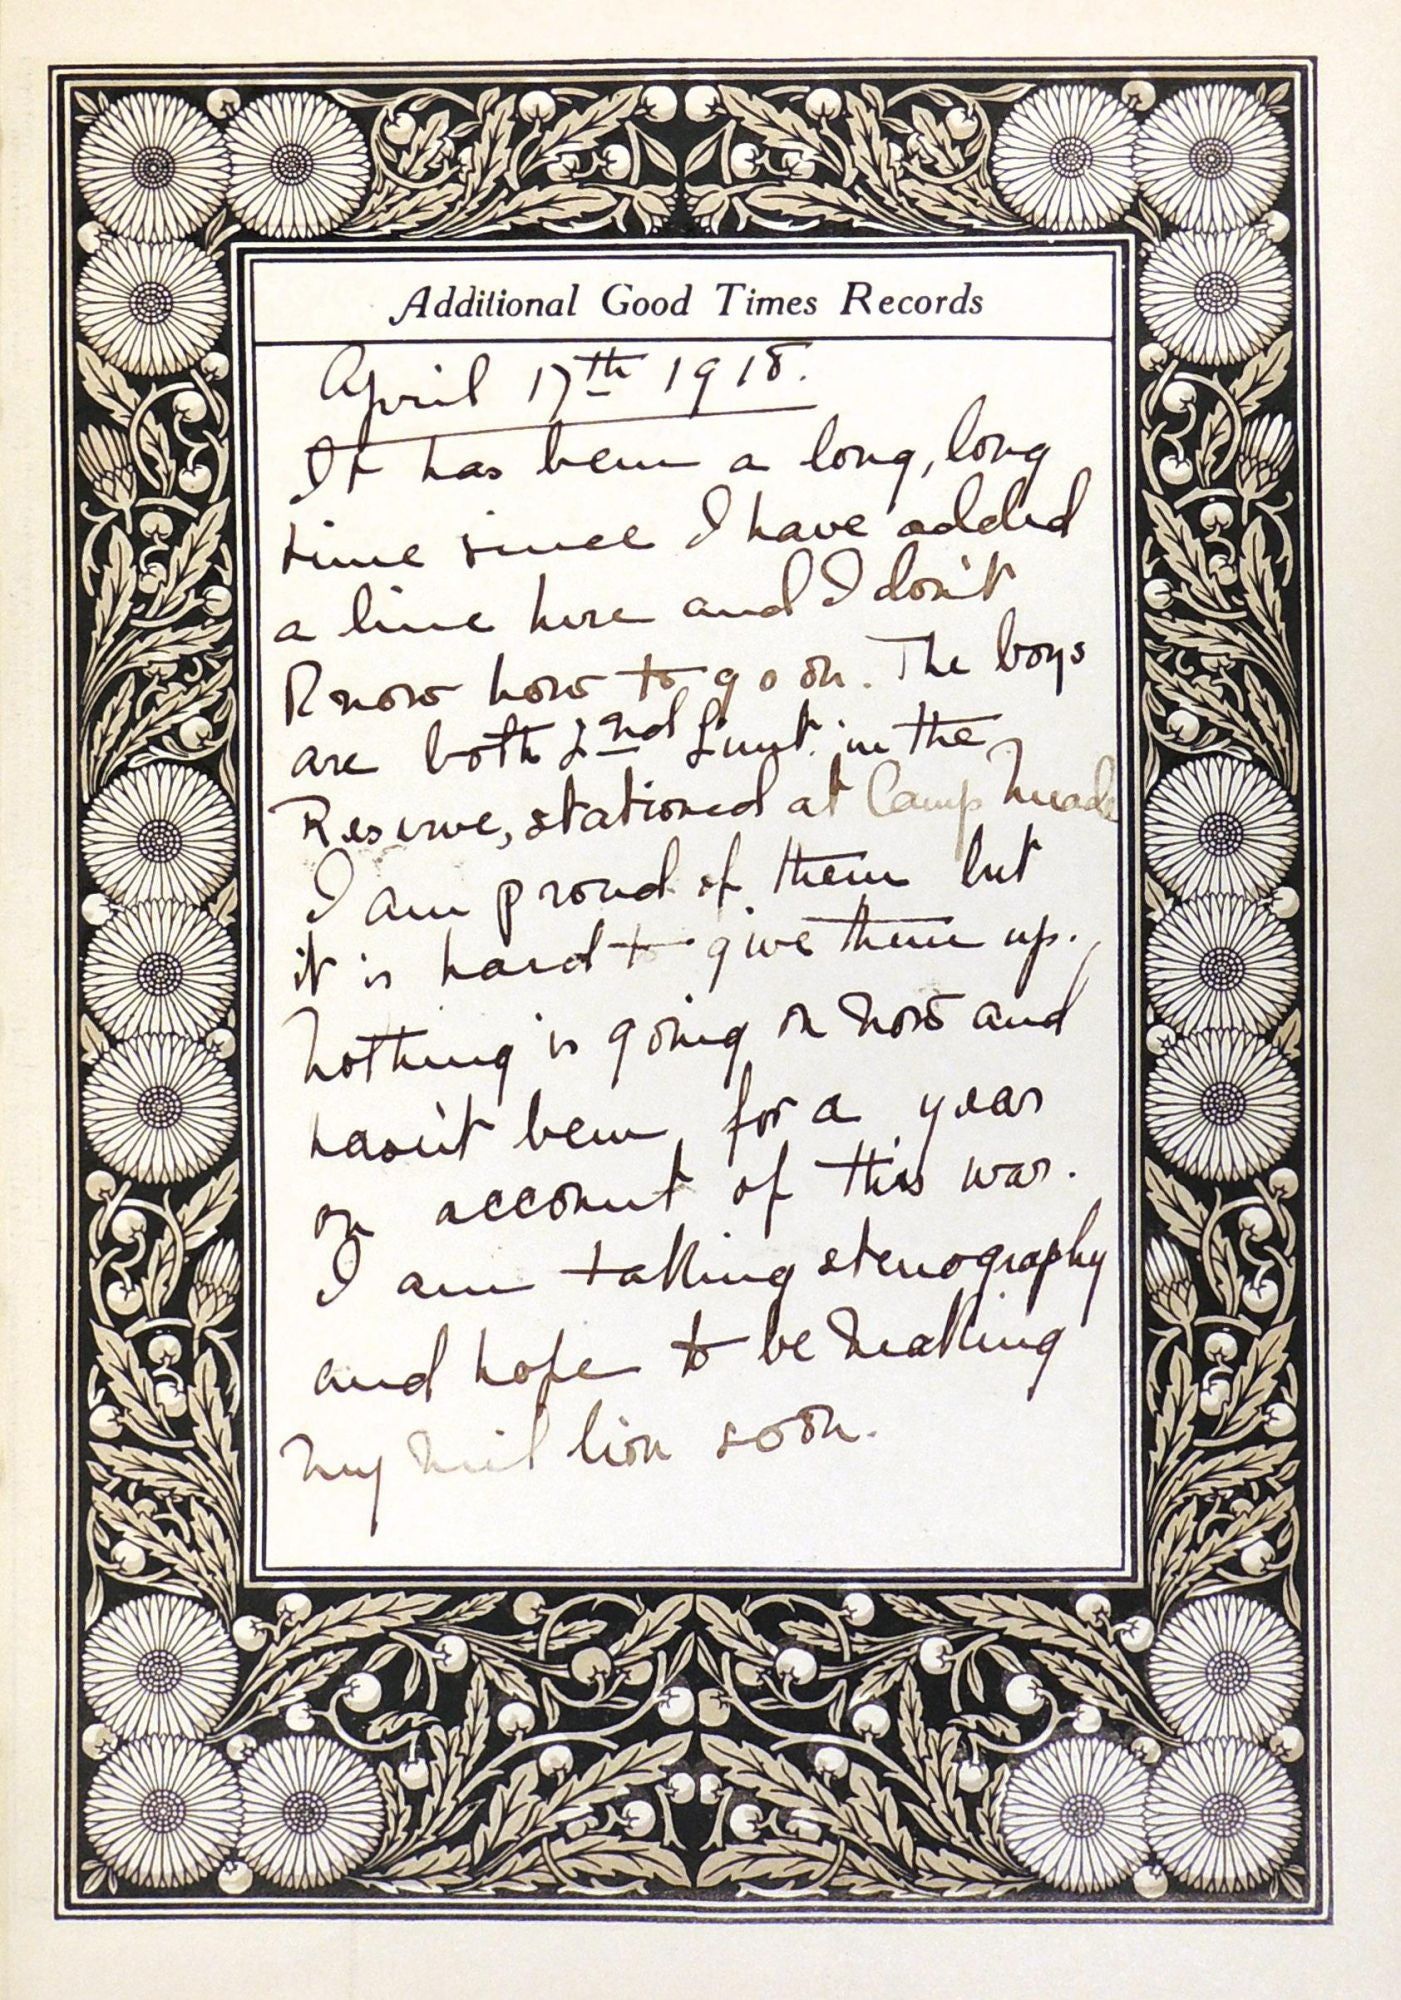 Additional Good Times Records
April 17th 1918.
It has been a long, long
time since I have added
a line here and I don't
know how to go on. The boys
are both 2nd Lieut. in the
Reserve, stationed at Camp Meade
I am proud of them but
it is hard to give them up.
Nothing is going on now and
hasn't been for a year
on account of this war.
I am taking stenography
and hope to be making
my million soon.